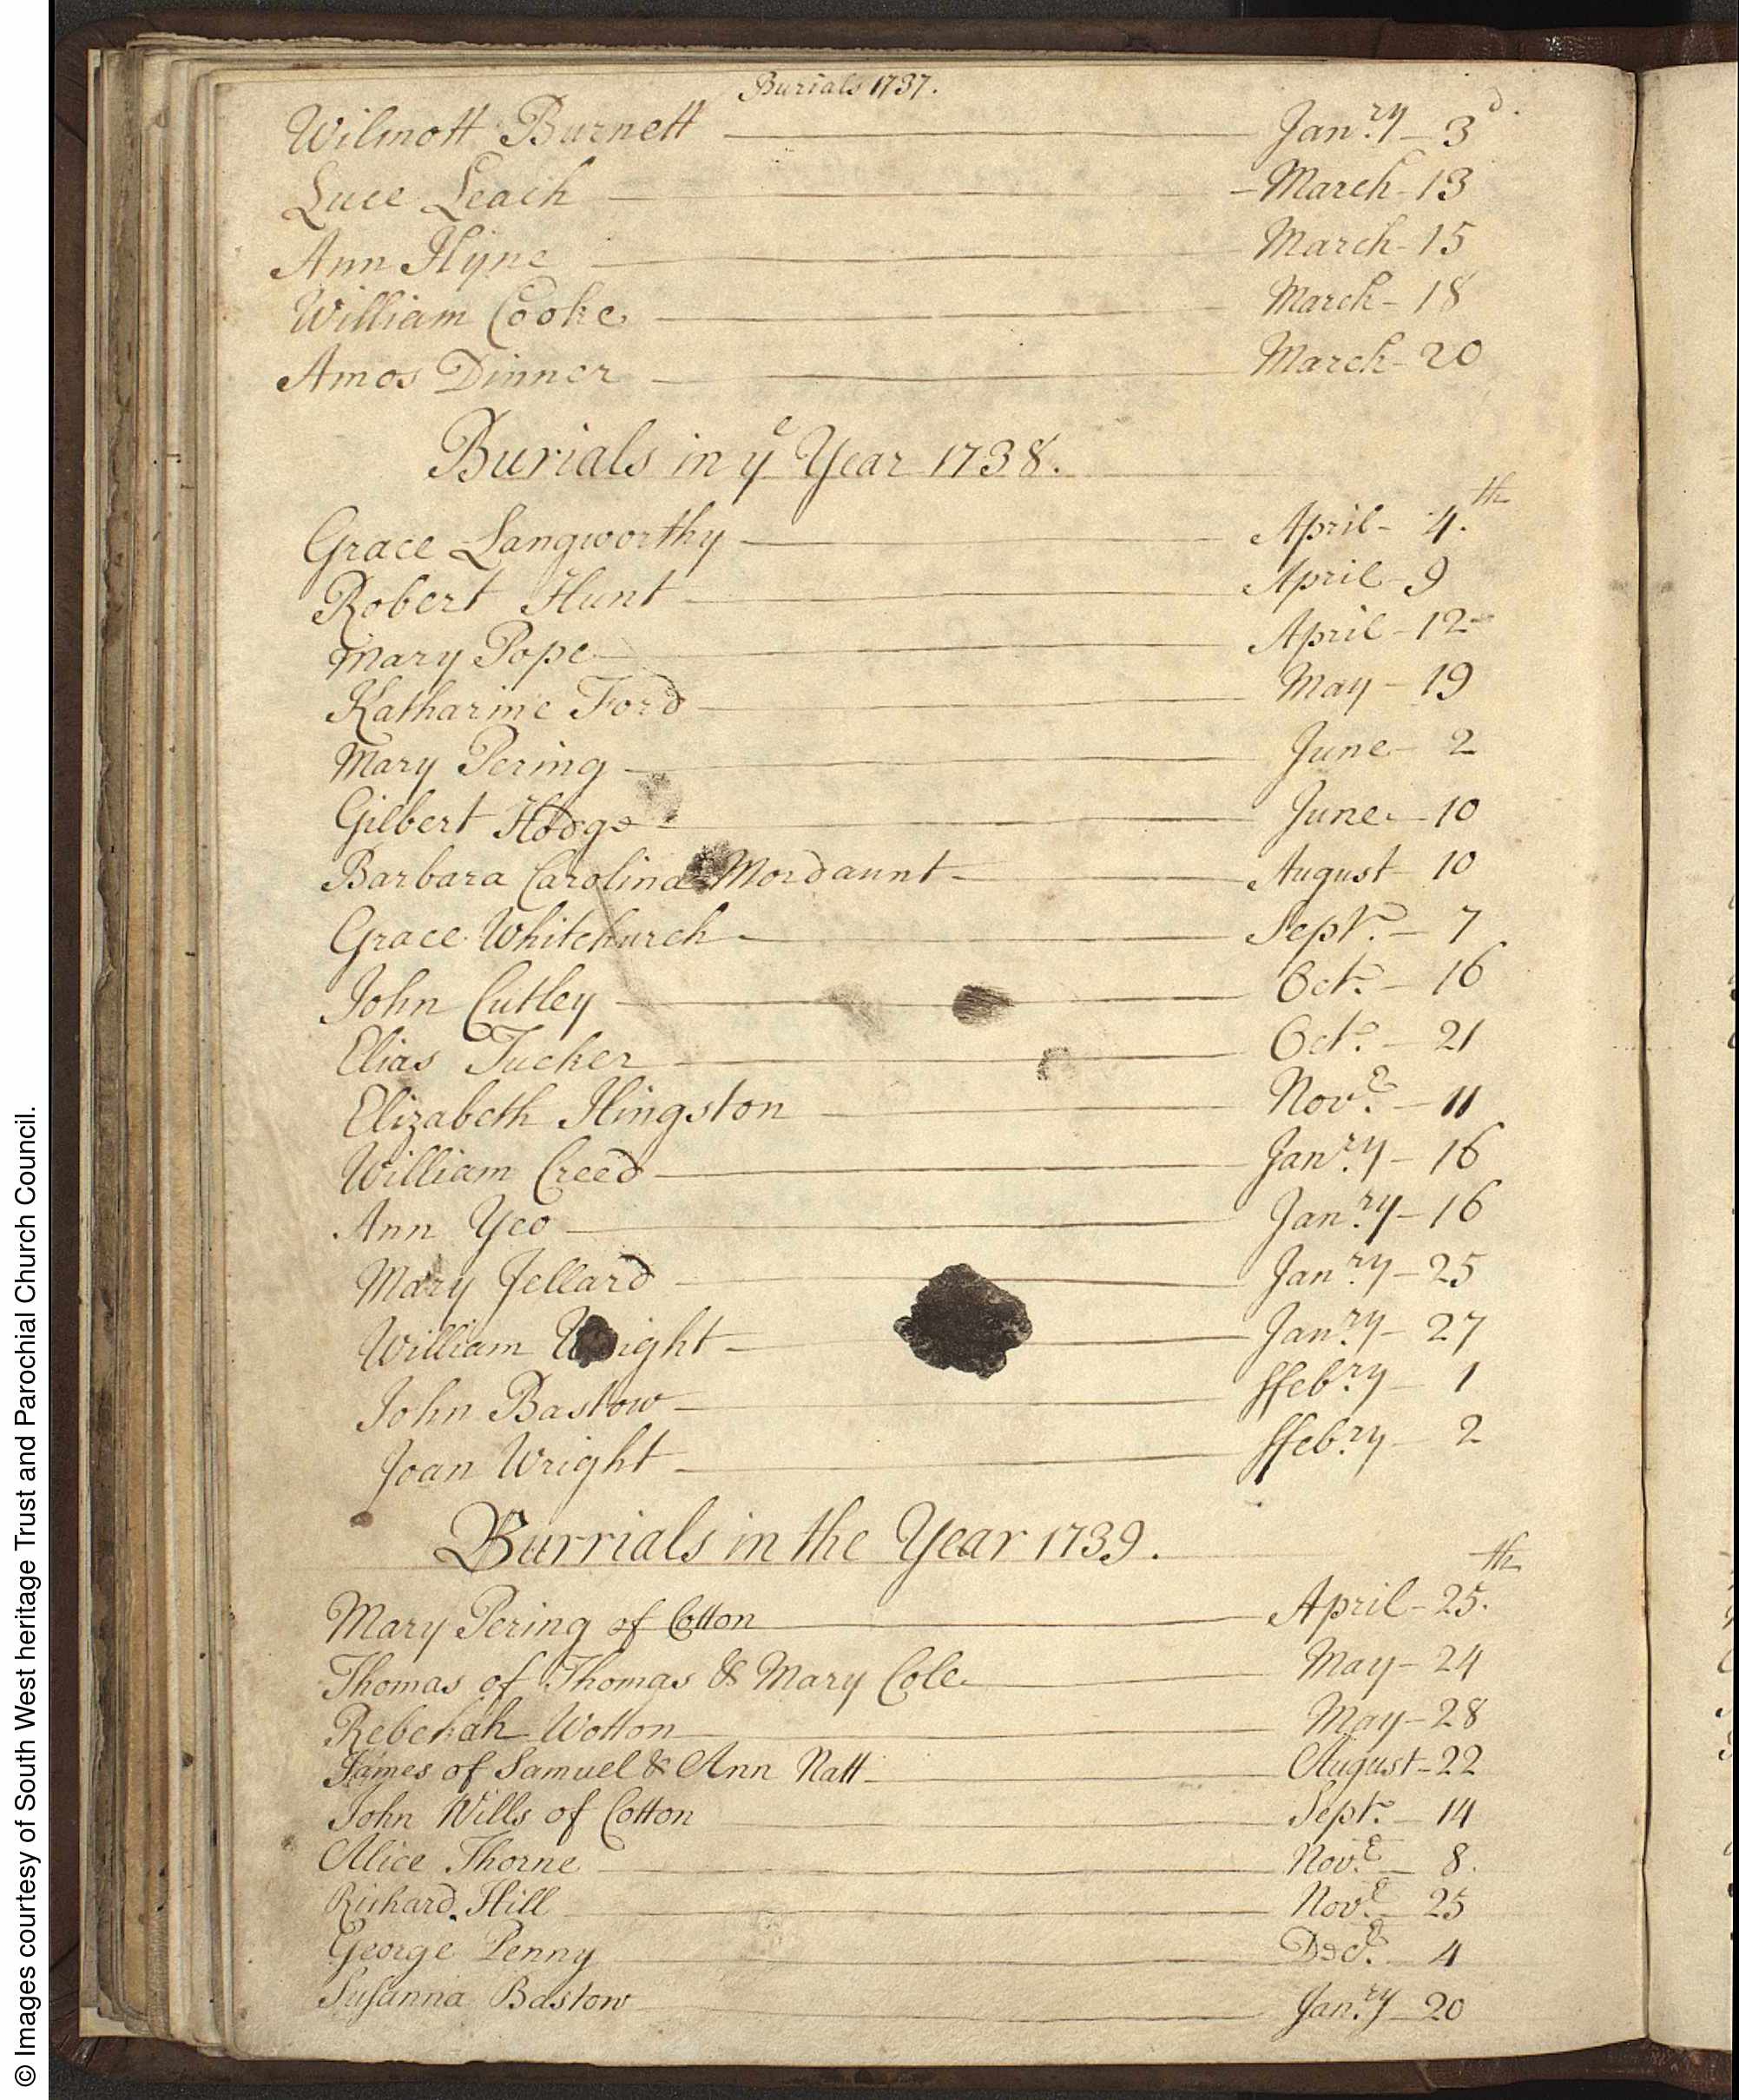 Burials 1737.
Wilmott Burnett Jan.ry 3d.
Luce Leach March 13
Ann Hyne March 15
William Cooke March 18
Amos Dinner March 20
Burials in ye Year 1738.
Grace Langworthy April 4.th
Robert Hunt April 9
Mary Pope April 12
Katharine Ford May 19
Mary Pering June 2
Gilbert Hodge June 10
Barbara Carolina Mordaunt August 10
Grace Whitchurch Sept.r 7
John Cutley Oct.r 16
Elias Tucker Oct.r 21
Elizabeth Hingston Nov.r 11
William Creed Jan.ry 16
Ann Yeo Jan.ry 16
Mary Jellard Jan.ry 25
William Wright Jan.ry 27
John Bastow ffeb.ry 1
Joan Wright ffeb.ry 2
Burrials in the Year 1739.
Mary Pering of Cotton April 25.th
Thomas of Thomas & Mary Cole May 24
Rebekah Wotton May 28
James of Samuel & Ann Natt August 22
John Wills of Cotton Sept.r 14
Alice Thorne Nov.r 8.
Richard Hill Nov.r 25
George Penny Dec.r 4
Susanna Bastow Jan.ry 20
© Images courtesy of South West heritage Trust and Parochial Church Council.